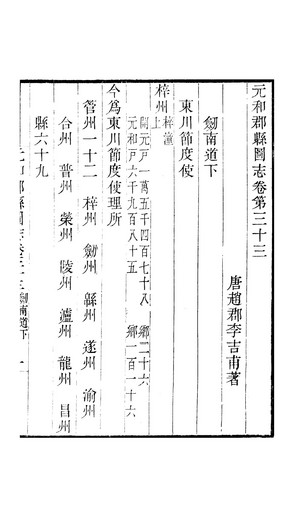 元和郡縣圖志卷第三十三
唐趙郡李吉甫著
劒南道下
東川節度使
梓州梓潼上
開元戸一萬五千四百七十八　鄉二十六
元和戸六千九百八十五　鄉一百一十六
今爲東川節度使理所
管州一十二　梓州　劒州　緜州　遂州　渝州
合州　普州　榮州　陵州　瀘州　龍州　昌州
縣六十九
元和郡縣圖志卷三十三劒南道下　一